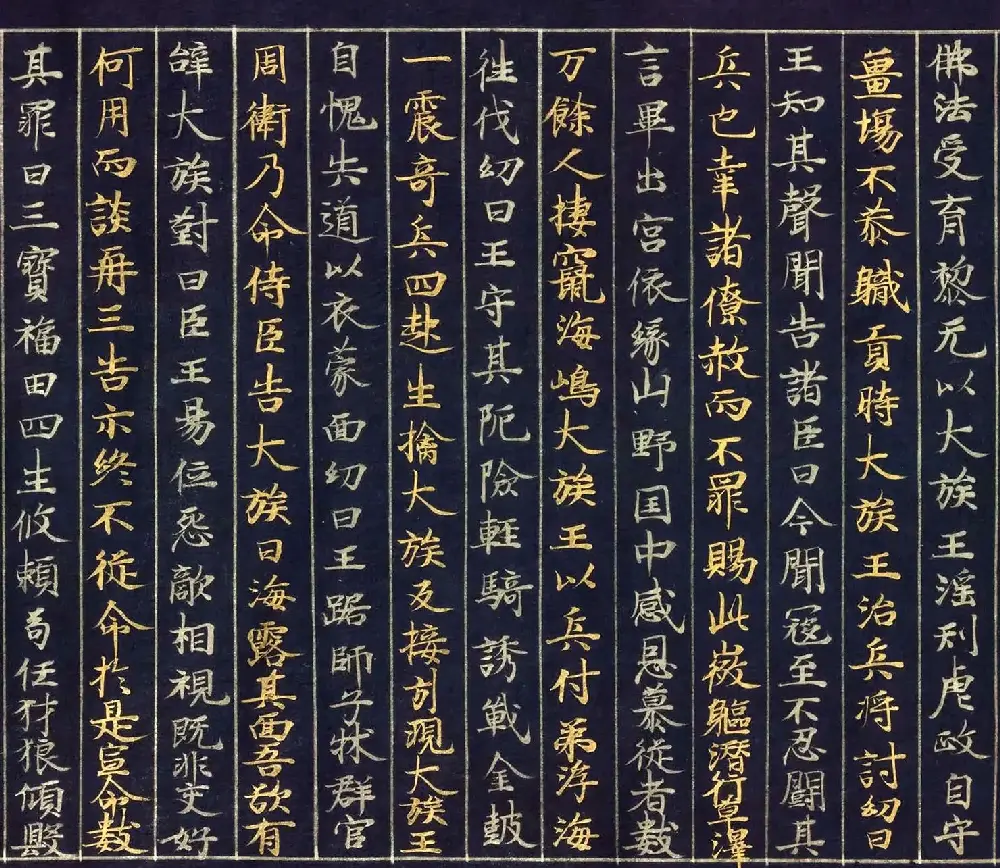 佛法受育黎元以大族王淫刑虐政自守
畺場不恭職貢時大族王治兵將討幼日
王知其聲聞告諸臣曰今聞寇至不忍鬪其
兵也幸諸僚赦而不罪賜此微軀潛行草澤
言畢出宮依緣山野国中感恩慕從者數
万餘人捿竄海嶋大族王以兵付弟浮海
往伐幼日王守其阨險輕騎誘戰金鼓
一震奇兵四赴生擒大族及接引現大族王
自愧失道以衣蒙面幼日王踞師子牀群官
周衛乃命侍臣告大族曰海露其面吾欲有
辝大族對曰臣王易位怨敵相視既非交好
何用面談再三告示終不從命於是宣命數
其罪曰三寶福田四生攸賴苟任犲狼傾毀